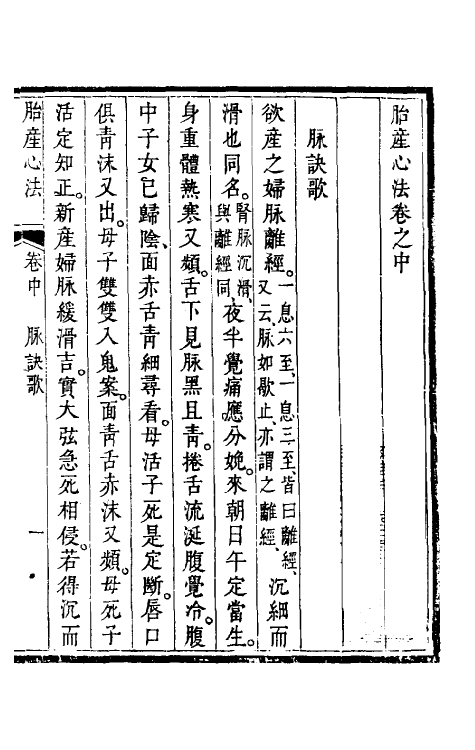 胎產心法卷之中
脉訣歌
欲產之婦脉離經。一息六至、一息三至、皆曰離經、又云、脉如歇止、亦謂之離經、沉細而
滑也同名。腎脉沉滑、與離經同、夜半覺痛應分娩。來朝日午定當生。
身重體熱寒又頻。舌下見脉黑且青。捲舌流涎腹覺冷。腹
中子女已歸陰、面赤舌青細尋看。母活子死是定斷。唇口
俱青沫又出。母子雙雙入鬼案。面青舌赤沫又頻。母死子
活定知正。新產婦脉緩滑吉。實大弦急死相侵。若得沉而
胎產心法
卷中 脉訣歌
一